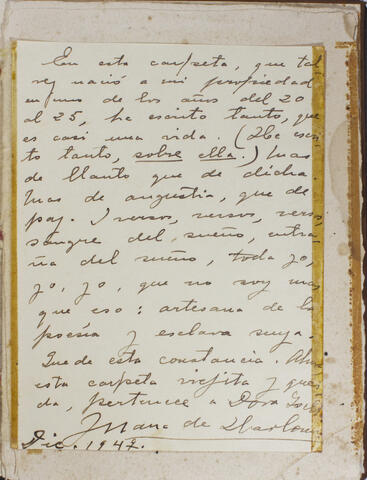 En esta carpeta, que tal
vez nació a mi propiedad
en uno de los años del 20
al 25, he escrito tanto, que
es casi una vida. (He escri
to tanto, sobre ella.) Mas
de llanto que de dicha.
Mas de angustia, que de
paz. I versos, versos, versos
sangre del sueño, entra
ña del sueño, toda yo,
yo, yo, que no soy mas
que eso: artesana de la
poesía y esclava suya.
Quede esta constancia. Ahora
esta carpeta viejita y queri
da, pertenece a Dora
Juana de Ibarbourou
Dic. 1947.